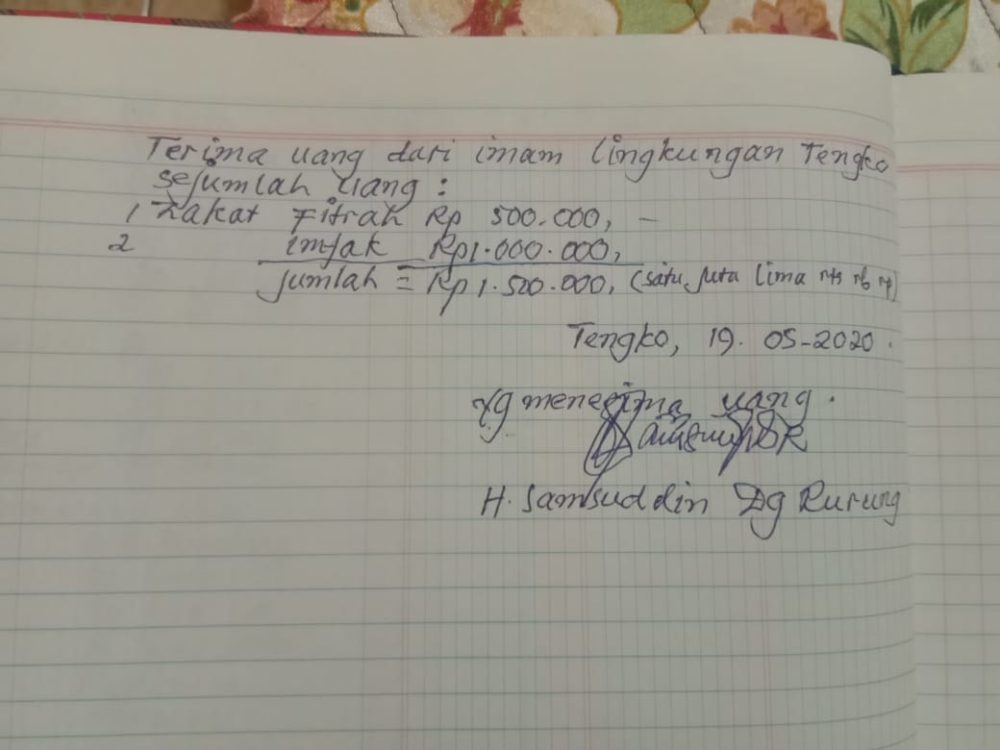 Terima uang dari imam lingkungan Tengko
sejumlah uang :
1 Zakat Fitrah Rp 500.000, -
2 imfak Rp1.000.000,
jumlah = Rp 1.500.000, (satu juta lima rts rb rp)
Tengko, 19. 05-2020.
Yg menerima uang.
H. Samsuddin Dg Rurung